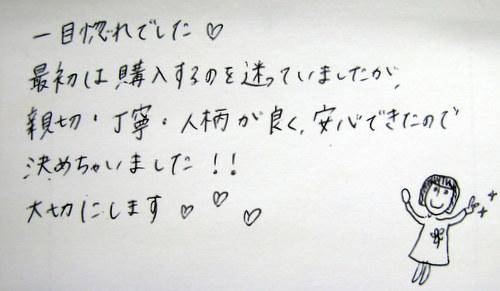 一目惚れでした♡
最初は購入するのを迷っていましたが、
親切・丁寧・人柄が良く、安心できたので
決めちゃいました!!
大切にします♡♡♡